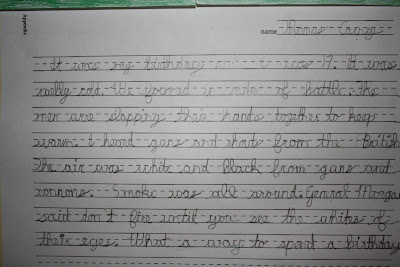 Appendix
name
It was my birthday I was 17. It was
really cold. We formed a line of battle. The
men are slapping their hands together to keep
warm. I heard guns and shots from the British
The air was white and black from guns and
connons. Smoke was all around. General Morgan
said don't fire until you see the whites of
their eyes. What a way to spend a birthday